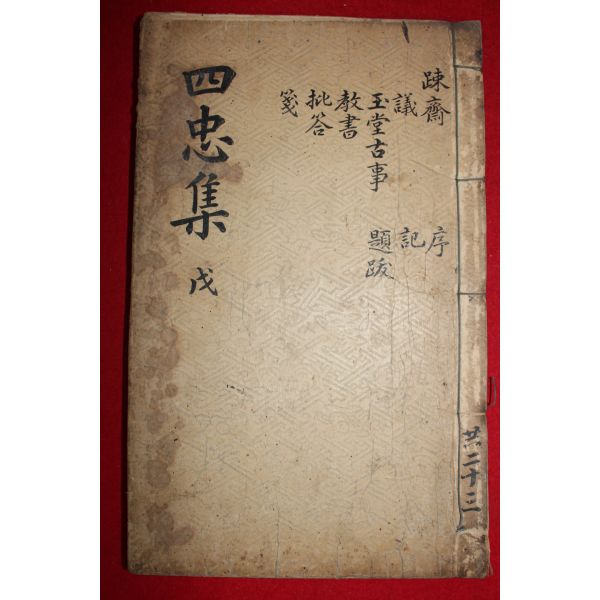 踈齋 序
議 記
玉堂古事 題跋
教書
批答
箋
四忠集 戊
共二十三